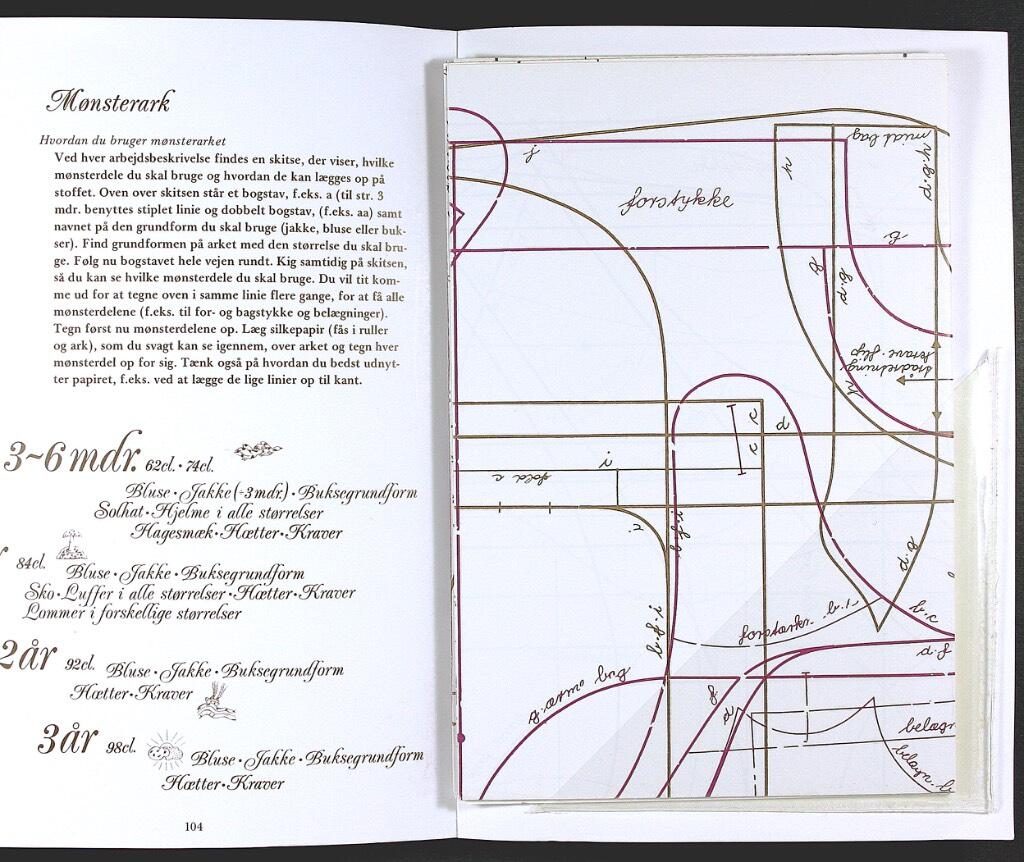 Mønsterark
Hvordan du bruger mønsterarket
Ved hver arbejdsbeskrivelse findes en skitse, der viser, hvilke
mønsterdele du skal bruge og hvordan de kan lægges op på
stoffet. Oven over skitsen står et bogstav, f.eks. a (til str. 3
mdr. benyttes stiplet linie og dobbelt bogstav, (f.eks. aa) samt
navnet på den grundform du skal bruge (jakke, bluse eller buk-
ser). Find grundformen på arket med den størrelse du skal bru-
ge. Følg nu bogstavet hele vejen rundt. Kig samtidig på skitsen,
så du kan se hvilke mønsterdele du skal bruge. Du vil tit kom-
me ud for at tegne oven i samme linie flere gange, for at få alle
mønsterdelene (f.eks. til for- og bagstykke og belægninger).
Tegn først nu mønsterdelene op. Læg silkepapir (fås i ruller
og ark), som du svagt kan se igennem, over arket og tegn hver
mønsterdel op for sig. Tænk også på hvordan du bedst udnyt-
ter papiret, f.eks. ved at lægge de lige linier op til kant.
3~6 mdr. 62cl. · 74cl.
Bluse · Jakke (÷3mdr.) · Buksegrundform
Solhat · Hjelme i alle størrelser
Hagesmæk · Hætter · Kraver
84cl.
Bluse · Jakke · Buksegrundform
Sko · Luffer i alle størrelser · Hætter · Kraver
Lommer i forskellige størrelser
2år 92cl. Bluse · Jakke · Buksegrundform
Hætter · Kraver
3år 98cl. Bluse · Jakke · Buksegrundform
Hætter · Kraver
104
midt bag
forstykke
trådretning
krave · flip
fold c
b · p
ærme bag
f · p
belægn
belægn